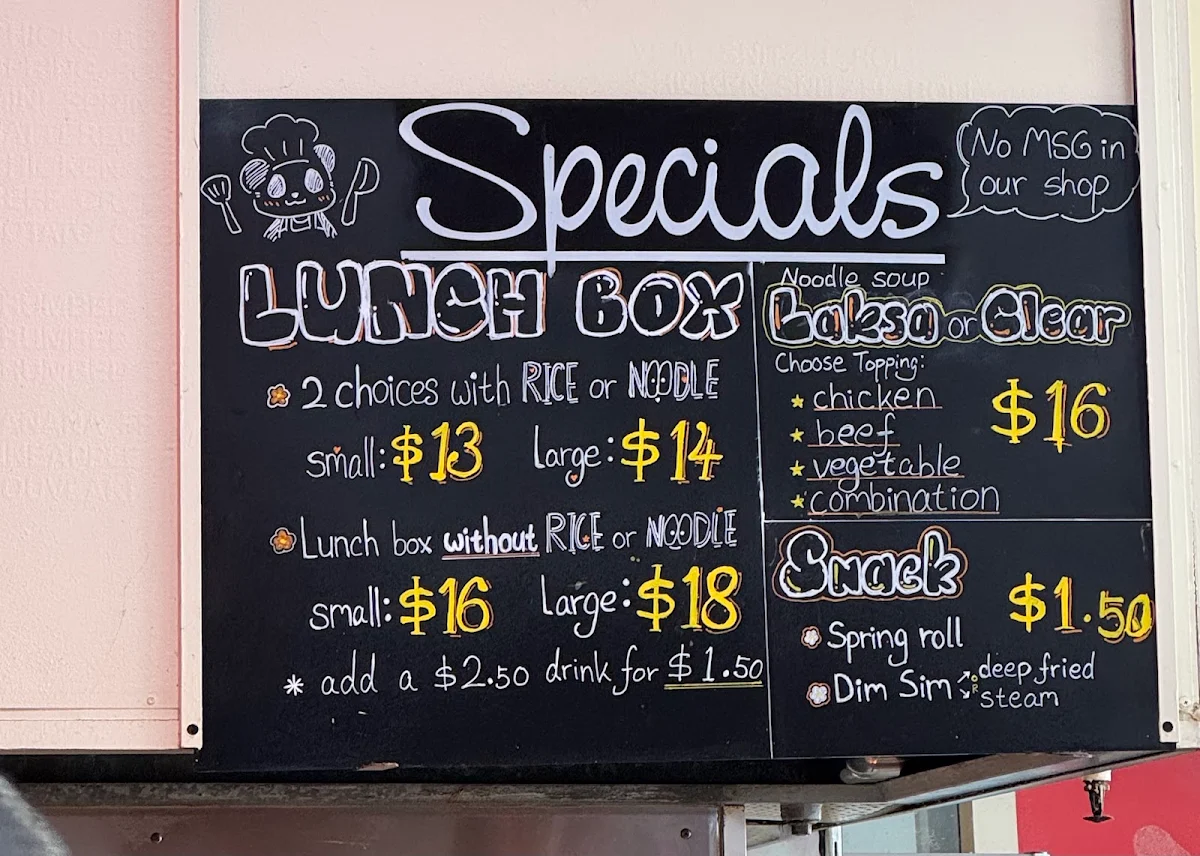 Specials
No MSG in
our shop
LUNCH BOX
2 choices with RICE or NOODLE
small: $13 Large: $14
Lunch box without RICE or NOODLE
small: $16 Large: $18
* add a $2.50 drink for $1.50
Noodle soup
Laksa or Clear
Choose Topping:
chicken
beef
vegetable
combination
$16
Snack
$1.50
Spring roll
Dim Sim
deep fried
OR
steam